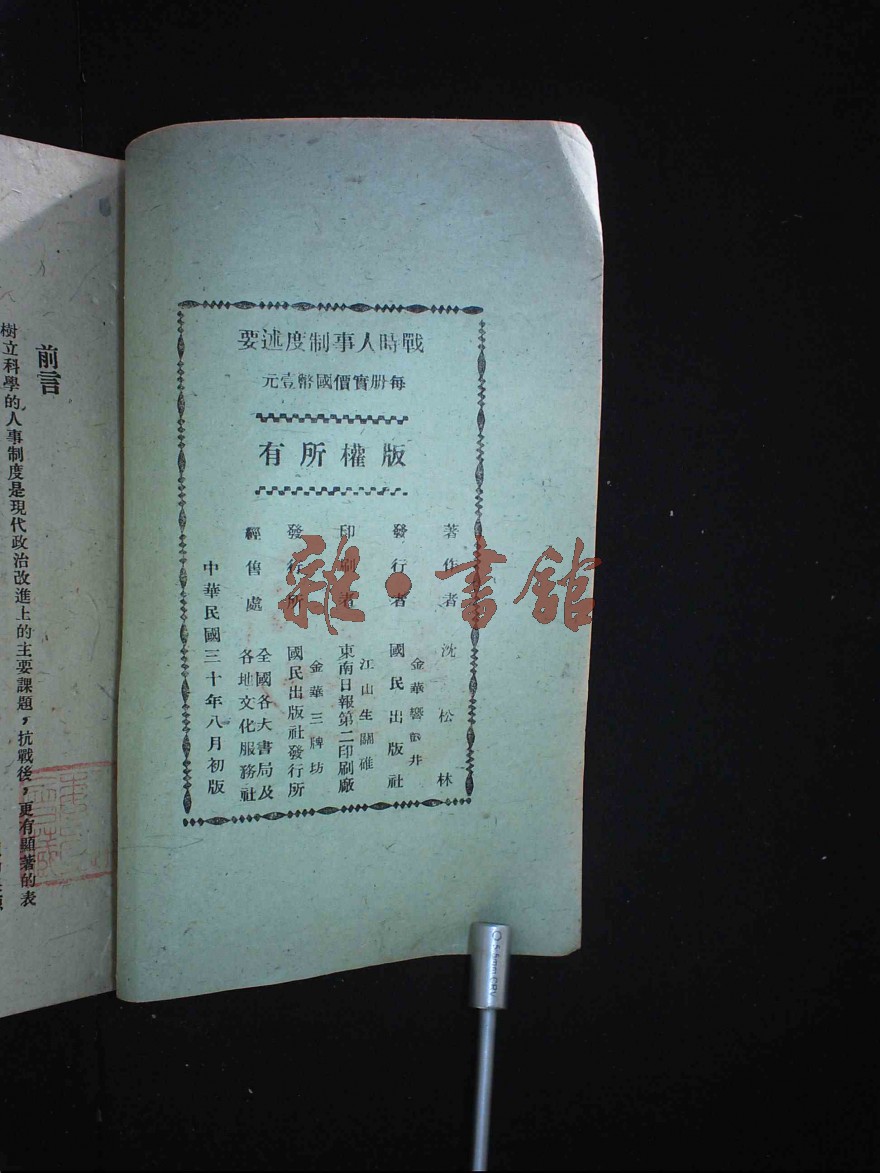 戰時人事制度述要
每册實價國幣壹元
版權所有
著作者 沈松林
發行者 國民出版社
金華
印刷者 東南日報第二印刷廠
江山生關碓
發行所 國民出版社發行所
金華三牌坊
經售處 全國各大書局及各地文化服務社
中華民國三十年八月初版
前言
樹立科學的人事制度是現代政治改進上的主要課題，抗戰後，更有顯著的表
雜·書館